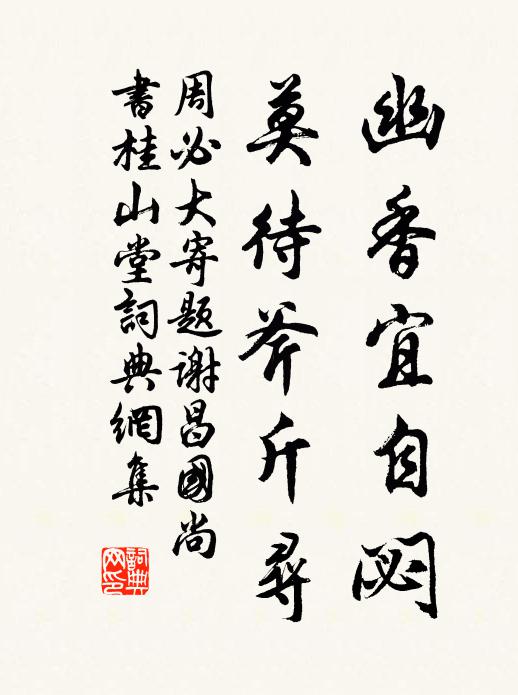 幽香宜自閟
莫待斧斤尋
周必大寄題谢昌國尚
書桂山堂詞典網集
詞典网印